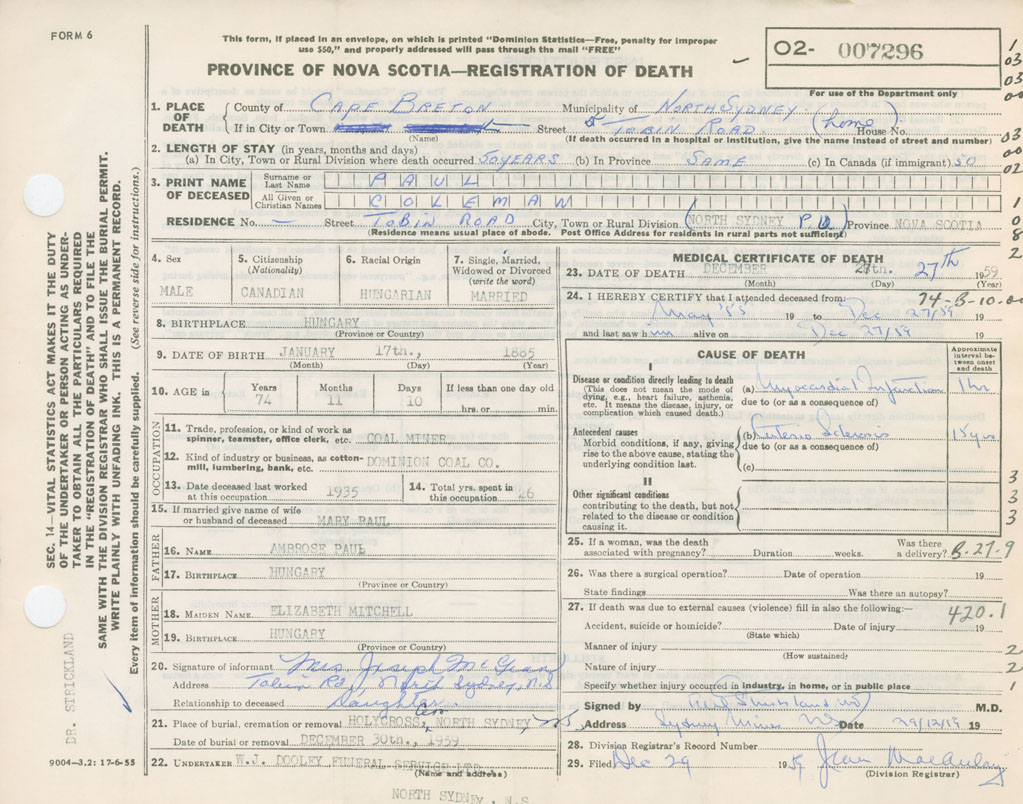 FORM 6
This form, if placed in an envelope, on which is printed "Dominion Statistics—Free, penalty for improper
use $50," and properly addressed will pass through the mail "FREE"
PROVINCE OF NOVA SCOTIA—REGISTRATION OF DEATH
O2- 007296
For use of the Department only
1
03
03
00
1. PLACE OF DEATH
County of CAPE BRETON Municipality of NORTH SYDNEY
If in City or Town Street TOBIN ROAD (home) House No.
(Name) (If death occurred in a hospital or institution, give the name instead of street and number)
03
2. LENGTH OF STAY (in years, months and days)
00
(a) In City, Town or Rural Division where death occurred 50 YEARS (b) In Province SAME (c) In Canada (if immigrant) 50
02
3. PRINT NAME OF DECEASED
Surname or Last Name PAUL
All Given or Christian Names COLEMAN
1
RESIDENCE No. — Street TOBIN ROAD City, Town or Rural Division (NORTH SYDNEY P.O) Province NOVA SCOTIA
0
(Residence means usual place of abode. Post Office Address for residents in rural parts not sufficient)
8
2
4. Sex
MALE
5. Citizenship
(Nationality)
CANADIAN
6. Racial Origin
HUNGARIAN
7. Single, Married,
Widowed or Divorced
(write the word)
MARRIED
8. BIRTHPLACE HUNGARY
(Province or Country)
9. DATE OF BIRTH JANUARY 17th., 1885
(Month) (Day) (Year)
10. AGE in
Years 74
Months 11
Days 10
If less than one day old
hrs. or min.
OCCUPATION
11. Trade, profession, or kind of work as
spinner, teamster, office clerk, etc. COAL MINER
12. Kind of industry or business, as cotton-
mill, lumbering, bank, etc. DOMINION COAL CO.
13. Date deceased last worked
at this occupation 1935
14. Total yrs. spent in
this occupation 26
15. If married give name of wife
or husband of deceased MARY PAUL
FATHER
16. NAME AMBROSE PAUL
17. BIRTHPLACE HUNGARY
(Province or Country)
MOTHER
18. MAIDEN NAME ELIZABETH MITCHELL
19. BIRTHPLACE HUNGARY
(Province or Country)
20. Signature of informant Mrs Joseph
Address Tobin Rd, North Sydney, N.S
Relationship to deceased Daughter
21. Place of burial, cremation or removal HOLYCROSS, NORTH SYDNEY
Date of burial or removal DECEMBER 30th., 1959
22. UNDERTAKER W.J. DOOLEY FUNERAL SERVICE LTD
(Name and address)
NORTH SYDNEY, N.S
MEDICAL CERTIFICATE OF DEATH
23. DATE OF DEATH DECEMBER 27th. 27th 1959
(Month) (Day) (Year)
24. I HEREBY CERTIFY that I attended deceased from: 74-B-10.00
May '55 19 to Dec 27/59 19
and last saw him alive on Dec 27/59 19
CAUSE OF DEATH
Approximate
interval be-
tween onset
and death
I
Disease or condition directly leading to death
(This does not mean the mode of
dying, e.g., heart failure, asthenia,
etc. It means the disease, injury, or
complication which caused death.)
(a) Myocardial Infarction 1 hr
due to (or as a consequence of)
Antecedent causes
Morbid conditions, if any, giving
rise to the above cause, stating the
underlying condition last.
(b) Arterio Sclerosis 15 yrs
due to (or as a consequence of)
(c)
II
Other significant conditions
contributing to the death, but not
related to the disease or condition
causing it.
3
3
3
25. If a woman, was the death
associated with pregnancy? Duration weeks. Was there
a delivery? B-27-9
26. Was there a surgical operation? Date of operation 19
State findings Was there an autopsy?
27. If death was due to external causes (violence) fill in also the following:— 420.1
Accident, suicide or homicide? Date of injury 19
(State which)
Manner of injury 2
(How sustained)
Nature of injury 2
Specify whether injury occurred in industry, in home, or in public place 1
Signed by Strickland M.D.
Address Sydney Mines NS Date 29/12/19 19
28. Division Registrar's Record Number
29. Filed Dec 29 1959 Jean MacAulay
(Division Registrar)
SEC. 14—VITAL STATISTICS ACT MAKES IT THE DUTY
OF THE UNDERTAKER OR PERSON ACTING AS UNDER-
TAKER TO OBTAIN ALL THE PARTICULARS REQUIRED
IN THE "REGISTRATION OF DEATH" AND TO FILE THE
SAME WITH THE DIVISION REGISTRAR WHO SHALL ISSUE THE BURIAL PERMIT.
WRITE PLAINLY WITH UNFADING INK. THIS IS A PERMANENT RECORD.
Every item of information should be carefully supplied. (See reverse side for instructions.)
DR. STRICKLAND
9004—3.2: 17-6-55